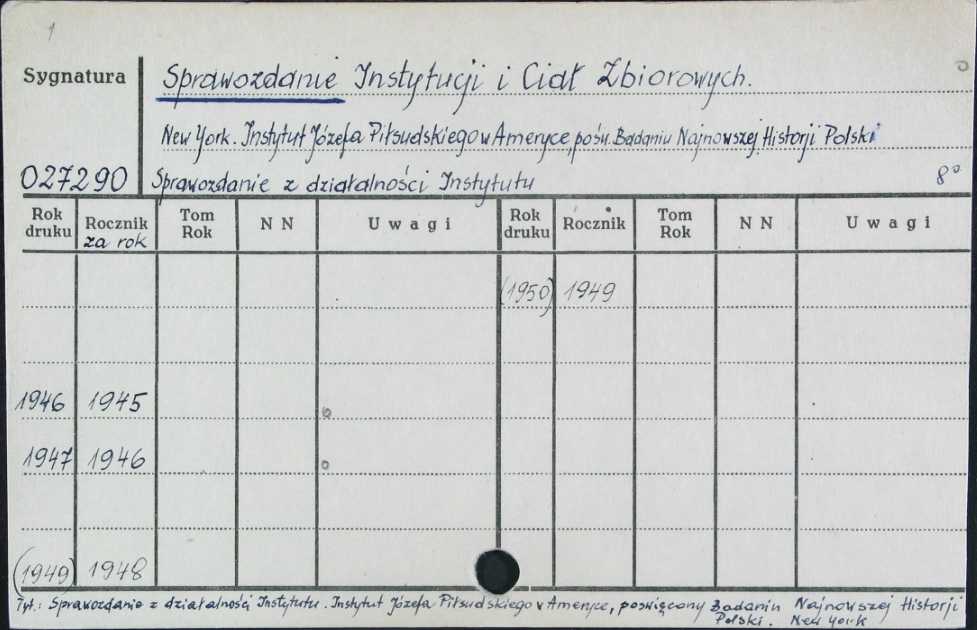 1
Sygnatura
Sprawozdanie Instytucji i Ciał Zbiorowych.
New York. Instytut Józefa Piłsudskiego w Ameryce, pośw. Badaniu Najnowszej Historji Polski
027290 Sprawozdanie z działalności Instytutu 8°
Rok druku Rocznik za rok Tom Rok N N Uwagi Rok druku Rocznik Tom Rok N N Uwagi
(1950) 1949
1946 1945
1947 1946
(1949) 1948
Tyt.: Sprawozdanie z działalności Instytutu. Instytut Józefa Piłsudskiego w Ameryce, poswięcony Badaniu Najnowszej Historji
Polski. New York